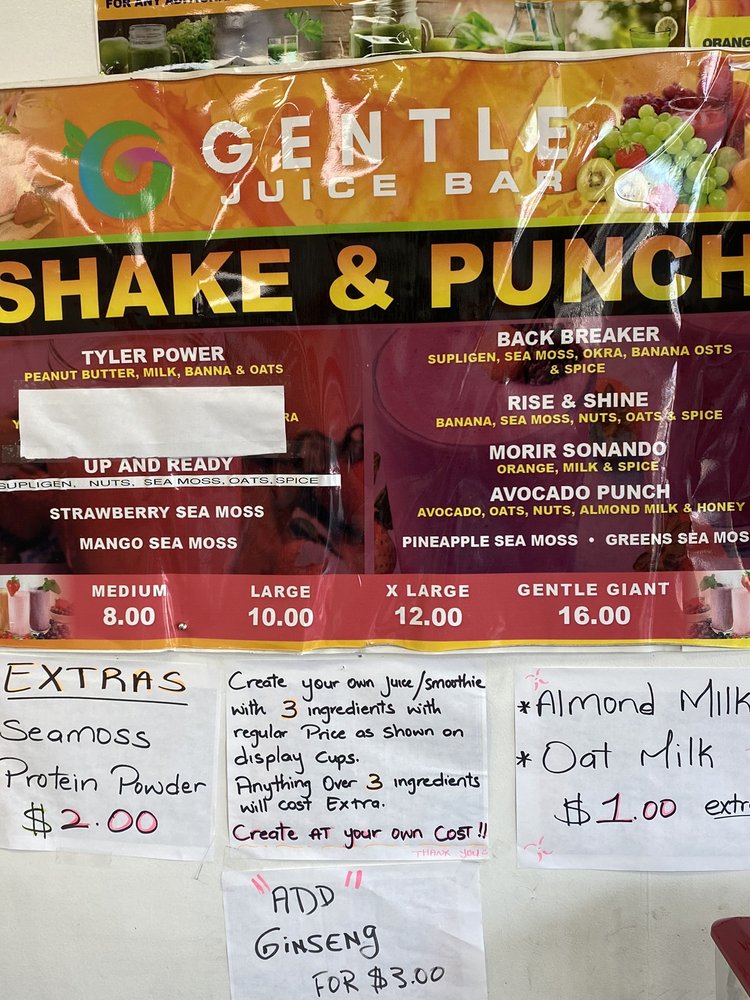 FOR ANY
ORANG
GENTLE
JUICE BAR
SHAKE & PUNCH
TYLER POWER
PEANUT BUTTER, MILK, BANNA & OATS
UP AND READY
SUPLIGEN, NUTS, SEA MOSS, OATS, SPICE
STRAWBERRY SEA MOSS
MANGO SEA MOSS
BACK BREAKER
SUPLIGEN, SEA MOSS, OKRA, BANANA OSTS
& SPICE
RISE & SHINE
BANANA, SEA MOSS, NUTS, OATS & SPICE
MORIR SONANDO
ORANGE, MILK & SPICE
AVOCADO PUNCH
AVOCADO, OATS, NUTS, ALMOND MILK & HONEY
PINEAPPLE SEA MOSS • GREENS SEA MOS
MEDIUM LARGE X LARGE GENTLE GIANT
8.00 10.00 12.00 16.00
EXTRAS
Seamoss
Protein Powder
$2.00
Create your own juice/smoothie
with 3 ingredients with
regular Price as shown on
display Cups.
Anything Over 3 ingredients
will cost Extra.
Create AT your own COST!!
THANK YOU
* Almond Milk
* Oat Milk
$1.00 extr
"ADD"
GINSENG
FOR $3.00